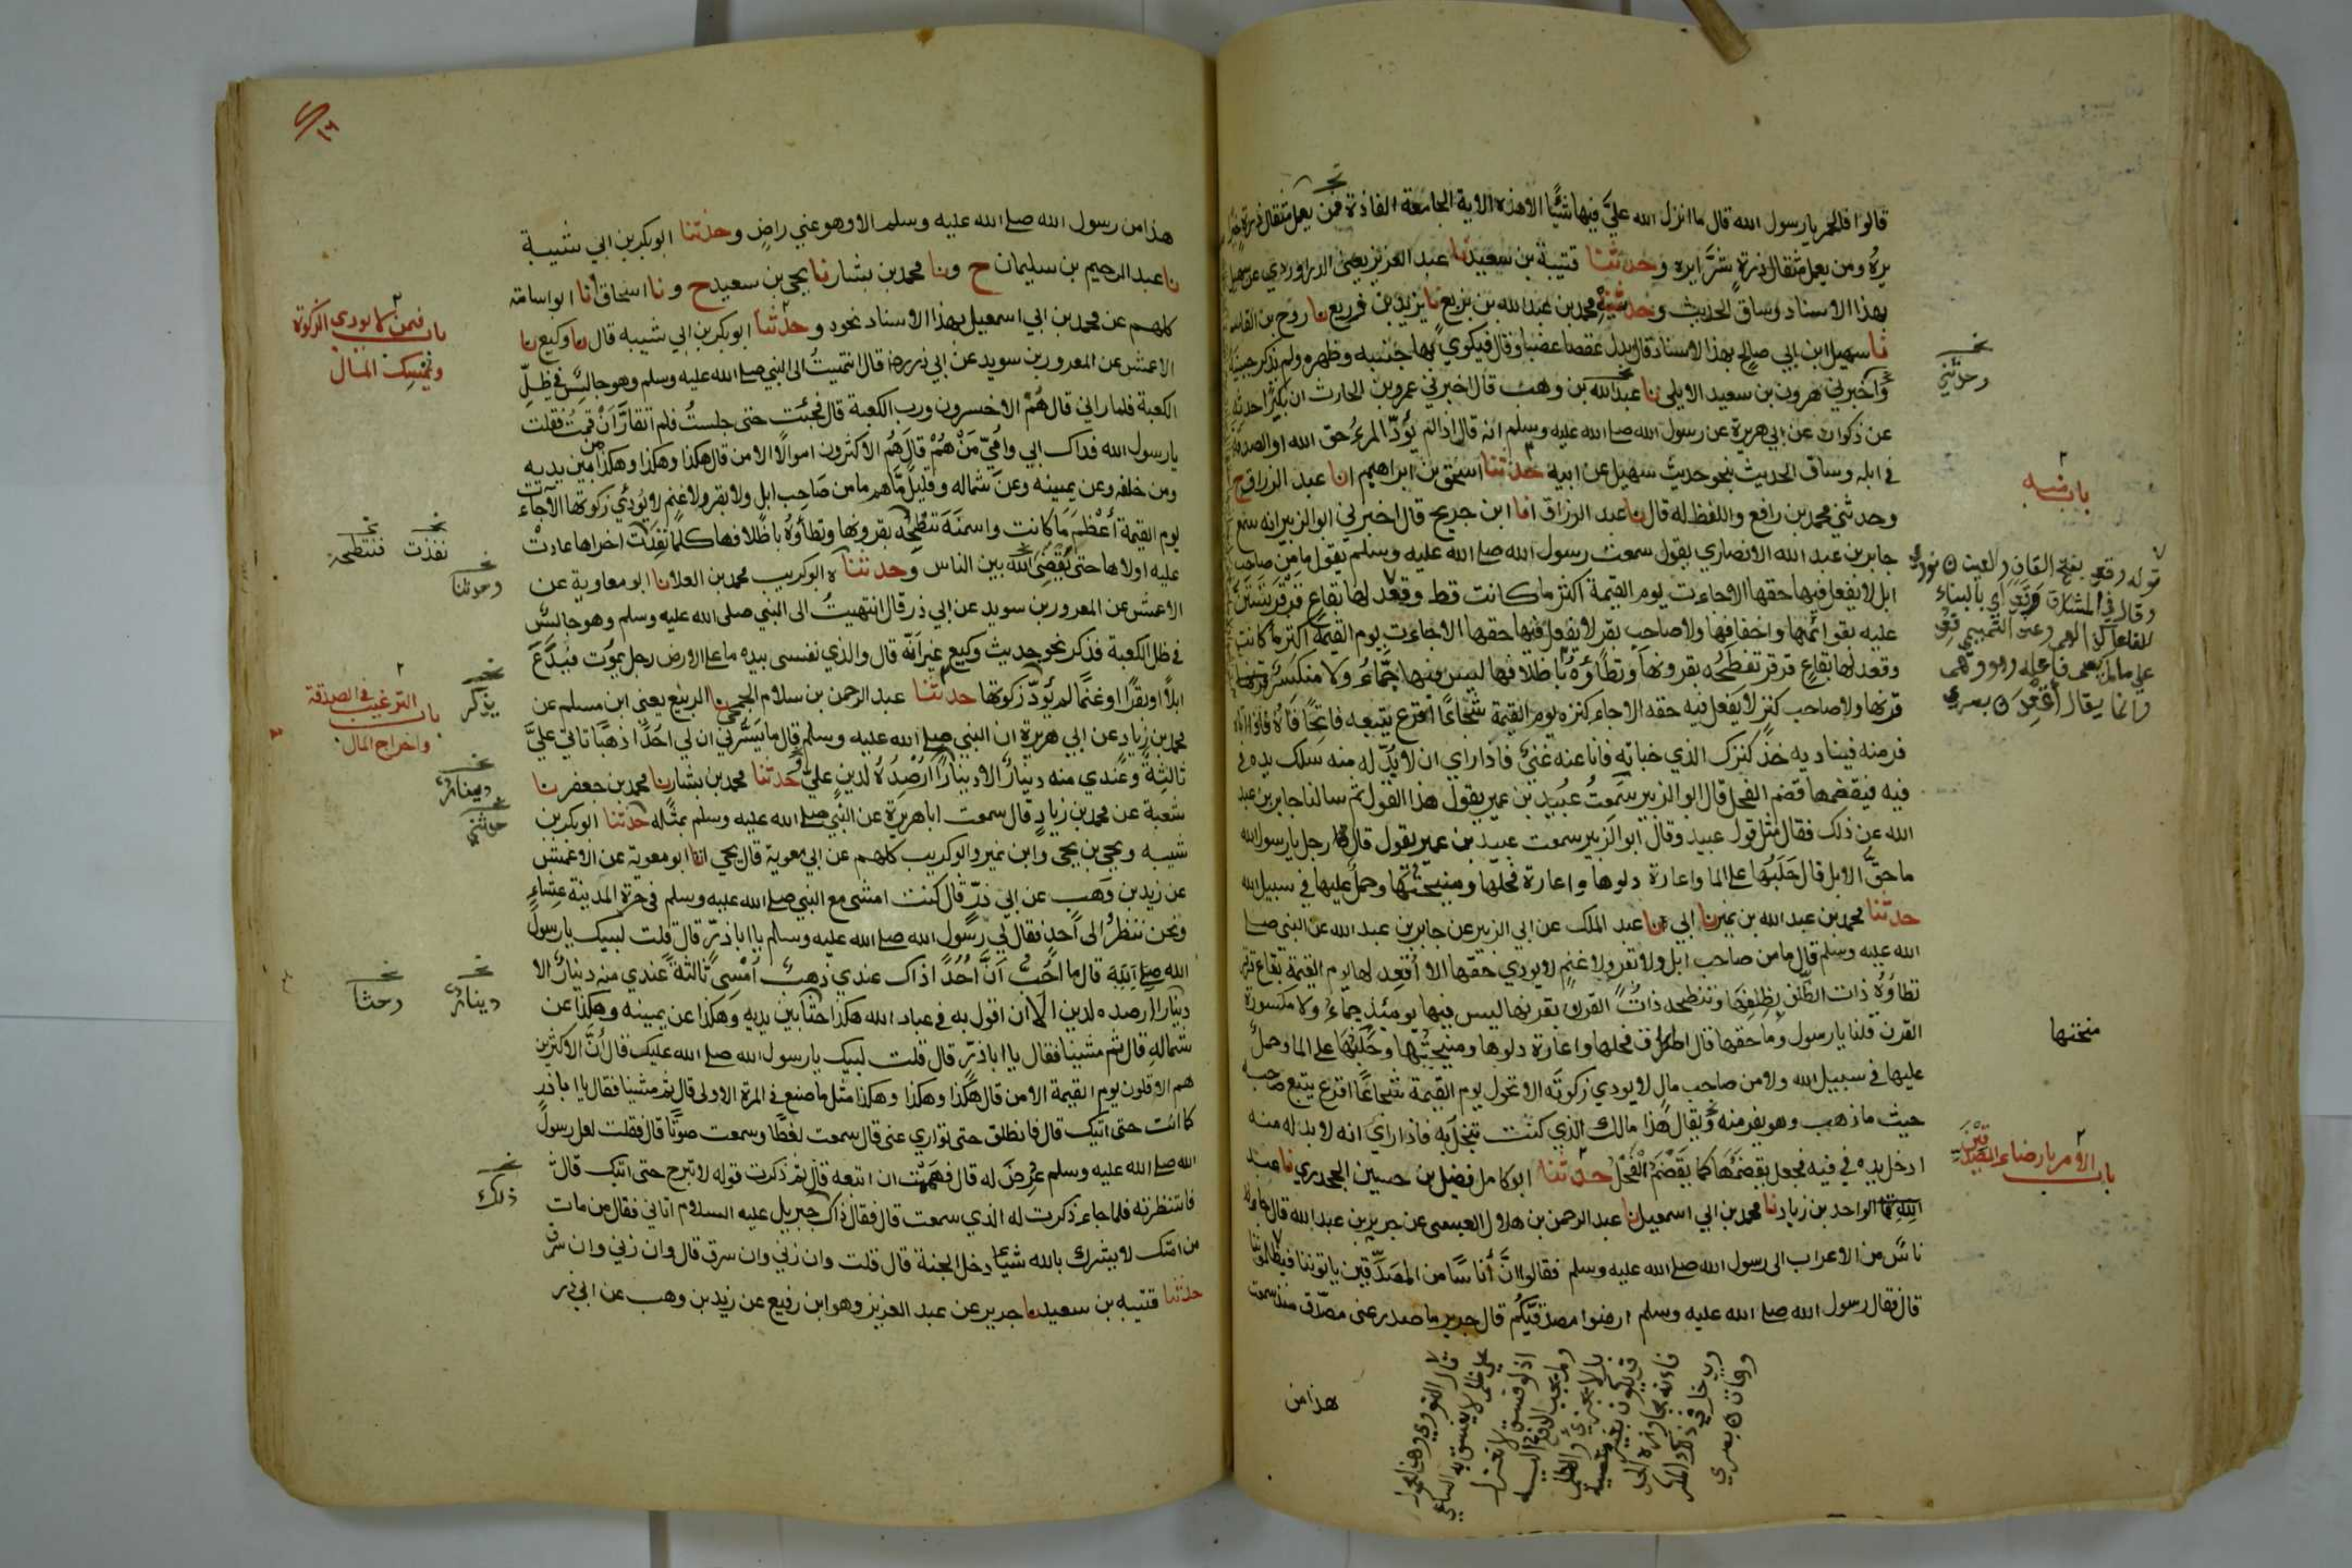 قالوا فالحمر يا رسول الله قال ما انزل الله عليّ فيها شيئًا الا هذه الاية الجامعة الفاذة فمن يعمل مثقال ذرة خيرا
يره ومن يعمل مثقال ذرةٍ شرًّا يره وحدثنا قتيبة بن سعيد نا عبد العزيز يعنى الدراوردي عن سهيل
بهذا الاسناد وساق الحديث وحدثنيه محمد بن عبد الله بن بزيع نا يزيد بن زريع نا روح بن القاسم
نا سهيل ابن ابي صالح بهذا الاسناد وقال بدل عقصا عضبا وقال فيكوي بها جنبه وظهره ولم يذكر جبينه
واخبرني هرون بن سعيد الايلى نا عبد الله بن وهب قال اخبرني عمرو بن الحارث ان بكيرا حدثه
عن ذكوان عن ابي هريرة عن رسول الله صلى الله عليه وسلم انه قال اذا لم يؤدّ المرءُ حق الله او الصدقة
في ابله وساق الحديث بنحو حديث سهيل عن ابيه حدثنا اسحق بن ابراهيم انا عبد الرزاق ح
وحدثني محمد بن رافع واللفظ له قال نا عبد الرزاق انا ابن جريج قال اخبرني ابو الزبير انه سمع
جابر بن عبد الله الانصاري يقول سمعت رسول الله صلى الله عليه وسلم يقول ما من صاحب
ابل لا يفعل فيها حقها الا جاءت يوم القيمة اكثر ما كانت قط وقعد لها بقاع قرقر تستن
عليه بقوائمها واخفافها ولا صاحب بقر لا يفعل فيها حقها الا جاءت يوم القيمة اكثر ما كانت
وقعد لها بقاعٍ قرقر تنطحُه بقرونها وتطأُوهُ باظلافها ليس فيها جمّاءُ ولا منكسرٌ
قرنها ولا صاحب كنز لا يفعل فيه حقه الا جاء كنزه يوم القيمة شجاعًا اقرع يتبعه فاتحًا فاهُ فاذا اتاه
فر منه فيناديه خذ كنزك الذي خباته فانا عنه غنيٌّ فاذا راي ان لا بُدّ له منه سلك يده في
فيه فيقضمها قضم الفحل قال ابو الزبير سمعتُ عُبيد بن عمير يقول هذا القول ثم سالنا جابر بن عبد
الله عن ذلك فقال مثل قول عبيد وقال ابو الزبير سمعت عبيد بن عمير يقول قال رجل يا رسول الله
ما حقّ الابل قال حلبُها على الما واعارة دلوها واعارة فحلها ومنيحتها وحملٌ عليها في سبيل الله
حدثنا محمد بن عبد الله بن نمير نا ابي نا عبد الملك عن ابي الزبير عن جابر بن عبد الله عن النبي صلى
الله عليه وسلم قال ما من صاحب ابل ولا بقر ولا غنمٍ لا يودي حقها الا أقعد لها يوم القيمة بقاع قرقر
تطأُوهُ ذات الظلف بظلفها وتنطحه ذاتُ القرن بقرنها ليس فيها يومئذٍ جماءُ ولا مكسورة
القرن قلنا يا رسول وما حقها قال اطراق فحلها واعارة دلوها ومنيحتها وحلبها على الما وحملٌ
عليها في سبيل الله ولا من صاحب مالٍ لا يودي زكوتَه الا تحول يوم القيمة شجاعًا اقرع يتبع صاحبه
حيث ما ذهب وهو يفر منه ويقال هذا مالك الذي كنت تبخل به فاذا راي انه لا بد له منه
ادخل يده في فيه فجعل يقضمها كما يقضَم الفحلُ حدثنا ابو كامل فضيل بن حسين الجحدري نا عبد
الواحد بن زياد نا محمد بن ابي اسمعيل نا عبد الرحمن بن هلال العبسى عن جرير بن عبد الله قال جاء
ناسٌ من الاعراب الى رسول الله صلى الله عليه وسلم فقالوا انّ أناسًا من المصدّقين ياتوننا فيظلموننا
قال فقال رسول الله صلى الله عليه وسلم ارضوا مصدقيكُم قال جرير ما صدر عنى مصدّق منذ سمعت
هذا من
وحدثني
باب منه
قوله وقعد بفتح القاف والعين
منحتها
باب الامر بارضاء المصدقين
هذا من رسول الله صلى الله عليه وسلم الا وهو عني راضٍ وحدثنا ابو بكر بن ابي شيبة
نا عبد الرحيم بن سليمان ح ونا محمد بن بشار نا يحيى بن سعيد ح ونا اسحاق انا ابو اسامة
كلهم عن محمد بن ابي اسمعيل بهذا الاسناد نحوه وحدثنا ابو بكر بن ابي شيبه قال نا وكيع نا
الاعمش عن المعرور بن سويد عن ابي ذر رضا قال انتهيتُ الى النبي صلى الله عليه وسلم وهو جالسٌ في ظلِّ
الكعبة فلما راني قال هُمُ الاخسرون ورب الكعبة قال فجئت حتى جلستُ فلم اتقارَّ اَنْ قمتُ فقلت
يا رسول الله فداك ابي وامُيّ مَنْ هُمْ قال هُم الاكثرون اموالًا الا من قال هكذا وهكذا وهكذا من بين يديه
ومن خلفه وعن يمينه وعن شماله وقليلٌ مّا هم ما من صاحب ابلٍ ولا بقر ولا غنمٍ لا يُؤدّي زكوتها الا جاءت
يوم القيمة أعْظَمَ ما كانت واسمنَهَ تنطحُه بقرونها وتطأوُهُ باظلافها كلما نفدت اخراها عادت
عليه اولاها حتى يُقْضَى بين الناس وحدثناه ابو كريب محمد بن العلا نا ابو معاوية عن
الاعمش عن المعرور بن سويد عن ابي ذر قال انتهيتُ الى النبي صلى الله عليه وسلم وهو جالسٌ
في ظل الكعبة فذكر نحو حديث وكيع غير اَنّه قال والذي نفسى بيده ما على الارض رجل يموُت فيَدَعَ
ابلًا او بقرًا او غنمًا لم يؤدّ زكوتها حدثنا عبد الرحمن بن سلام الجمحى نا الربيع يعنى ابن مسلم عن
محمد بن زيادٍ عن ابي هريرة ان النبي صلى الله عليه وسلم قال ما يَسُرّني ان لي احُدًا ذهبًا تاتي عليَّ
ثالثةٌ وعندي منه دينارٌ الا دينارًا اُرْصِدُهُ لدينٍ عليّ وحدثنا محمد بن بشار نا محمد بن جعفر نا
شعبة عن محمد بن زيادٍ قال سمعت ابا هريرة عن النبي صلى الله عليه وسلم بمثله حدثنا ابو بكر بن
شيبه ويحيى بن يحيى وابن نمير وابو كريب كلهم عن ابي معوية قال يحيى انا ابو معوية عن الاعمش
عن زيد بن وهب عن ابي ذرّ قال كنت امشى مع النبي صلى الله عليه وسلم في حرة المدينة عشاءٍ
ونحن ننظرُ الى اُحدٍ فقال لي رسول الله صلى الله عليه وسلم يا ابا ذرّ قال قلت لبيك يا رسول
الله قال ما احُب انَّ اُحُدًا ذاك عندي ذهبٌ اَمْسى ثالثةً عندي منه دينارٌ الا
دينارًا ارصده لدينٍ الا ان اقول به في عباد الله هكذا حثا بين يديه وهكذا عن يمينه وهكذا عن
شمالهِ قال ثم مشينا فقال يا ابا ذرّ قال قلت لبيك يا رسول الله صلى الله عليك قال انَّ الاكثرين
هم الاقلون يوم القيمة الا من قال هكذا وهكذا وهكذا مثل ما صنع في المرة الاولى قال ثم مشينا فقال يا ابا ذر
كما انت حتى اتيك قال فانطلق حتى تواري عنى قال سمعت لغطًا وسمعت صوتًا قال فقلت لعل رسول
الله صلى الله عليه وسلم عُرِضَ له قال فهممْت ان اتبعه قال ثم ذكرت قوله لا تبرح حتى اتيك قال
فانتظرته فلما جاء ذكرت له الذي سمعت قال فقال ذاك جبريل عليه السلام اتاني فقال من مات
من امتك لا يشرك بالله شيئًا دخل الجنة قال قلت وان زنى وان سرق قال وان زنى وان سرق
حدثنا قتيبه بن سعيد نا جرير عن عبد العزيز وهو ابن رفيع عن زيد بن وهب عن ابي ذر
باب فيمن لا يودي الزكوة
ويمسك المال
نفذت فتنطحه
وحدثنا
يذكر
باب الترغيب في الصدقة
واخراج المال
دينارٌ
حدثني
دينارٌ وحدثنا
ذلك